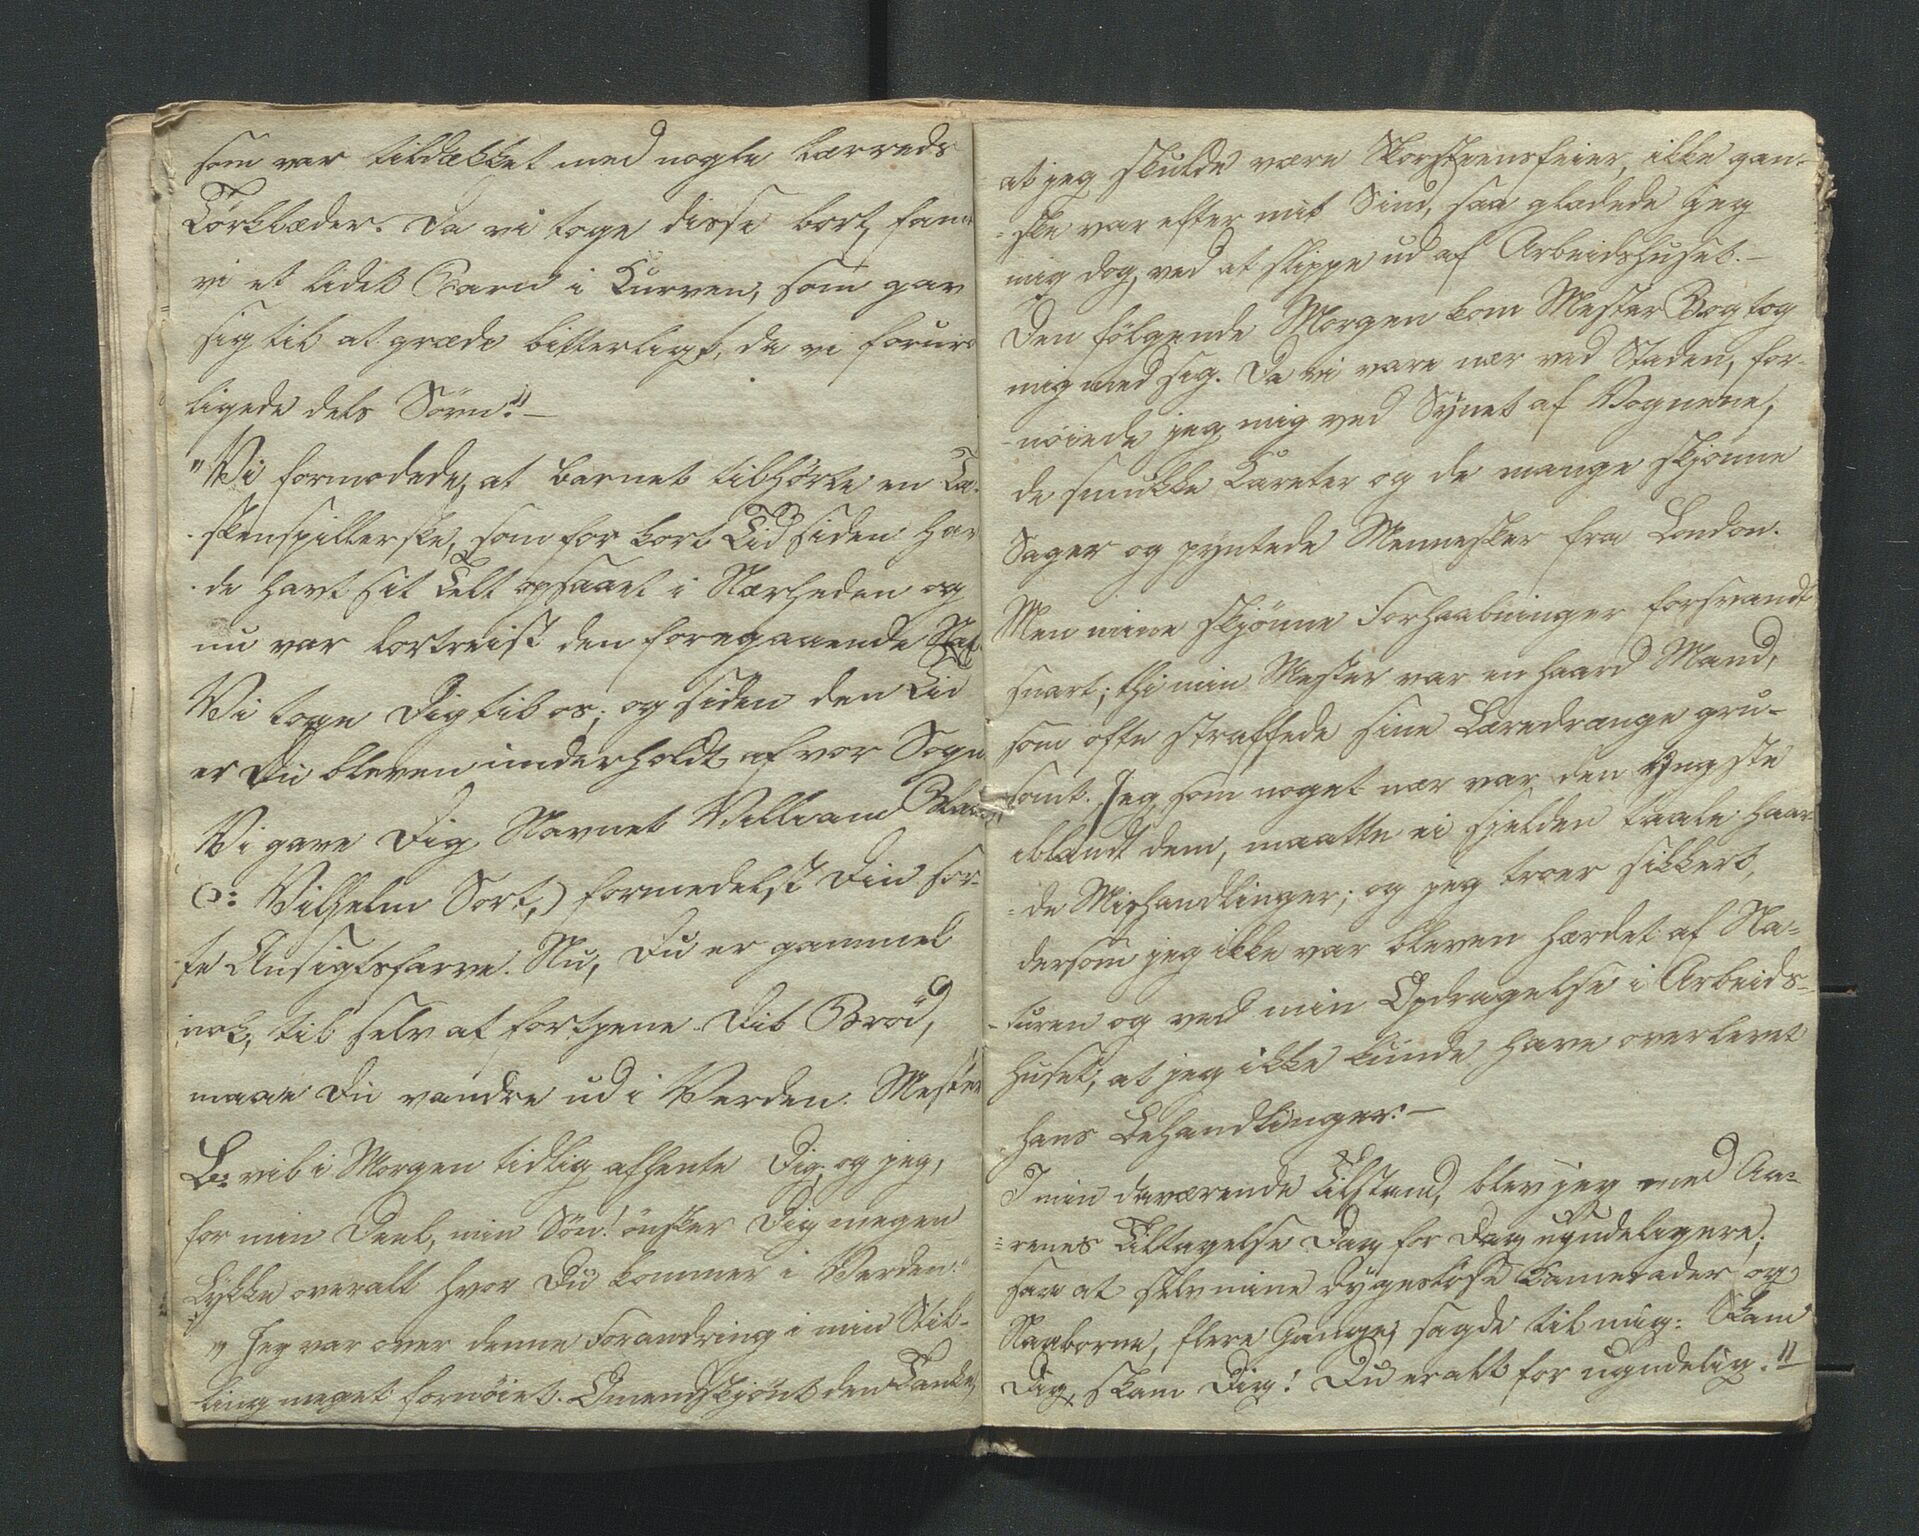 som var tildækket med nogle Lærreds
Törklæder. Da vi toge disse bort, fan-
vi et lidet Barn i Kurven, som gav
sig til at græde bitterligt, da vi foruro
ligede dets Sövn."—
"Vi formodede, at Barnet tilhörte en Ta-
skenspillerske, som for kort Tid siden hav
de havt sit Telt opslaaet i Nærheden og
nu var bortreist den foregaaende Nat.
Vi toge Dig til os; og siden den Tid
er Du bleven underholdt af vor Sogn
Vi gave Dig Navnet William Black
(ↄ: Vilhelm Sort,) formedelst Din sor-
te Ansigtsfarve. Nu, Du er gammel
nok, til selv at fortjene Dit Bröd,
maae Du vandre ud i Verden. Mester
B: vil i Morgen tidlig afhente Dig; og jeg,
for min Deel, min Sön! önsker Dig megen
Lykke overalt hvor Du kommer i Verden."
"Jeg var over denne Forandring i min Stil-
ling meget fornöiet. Omendskjönt den Tanke,
at jeg skulde være Skorsteensfeier, ikke gan-
-ske var efter mit Sind, saa glædede jeg
mig dog, ved at slippe ud af Arbeidshuset.—
Den fölgende Morgen kom Mester B og tog
mig med sig. Da vi vare nær ved Staden, for-
-nöiede jeg mig ved Synet af Vognene,
de smukke Kareter og de mange skjönne
Sager og pyntede Mennesker fra London.
Men mine skjönne Forhaabninger forsvandt
snart; thi min Mester var en haard Mand,
som ofte straffede sine Læredrenge gru-
somt. Jeg, som noget nær var den Yngste
iblandt dem, maatte ei sjelden taale haar-
-de Mishandlinger; og jeg troer sikkert,
dersom jeg ikke var bleven hærdet af Na-
-turen og ved min Opdragelse i Arbeids-
huset, at jeg ikke kunde have overlevet
hans Behandlinger.—
I min daværende Tilstand, blev jeg med Aa-
-renes Tiltagelse Dag for Dag ugudeligere;
saa at selv mine dydeslöse Kamerader og
Naaborne, flere Gange, sagde til mig: Skam
Dig, skam Dig! Du er alt for ugudelig."